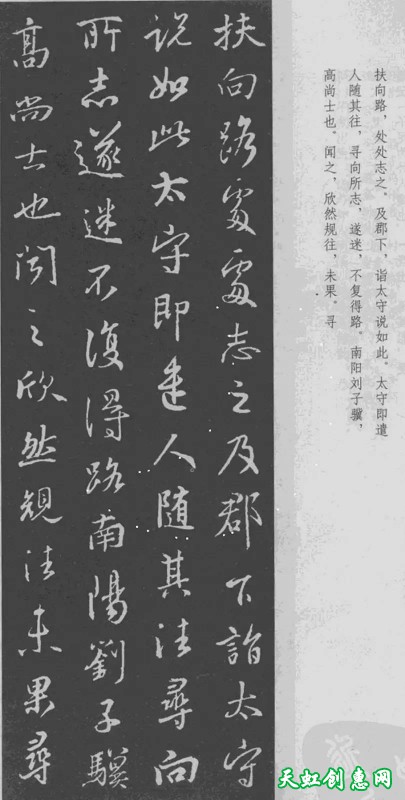 扶向路處處志之及郡下詣太守
说如此太守即遣人随其往尋向
所志遂迷不復得路南陽劉子驥
高尚士也闻之欣然规往未果尋
扶向路，处处志之。及郡下，诣太守说如此。太守即遣
人随其往，寻向所志，遂迷，不复得路。南阳刘子骥，
高尚士也。闻之，欣然规往，未果。寻
天虹创惠网